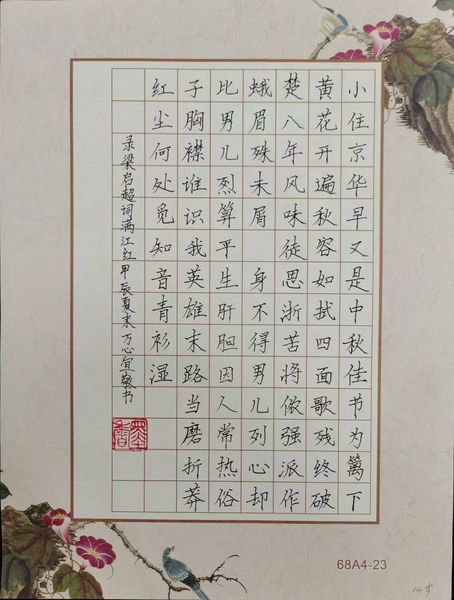 小住京华早又是中秋佳节为篱下
黄花开遍秋容如拭四面歌残终破
楚八年风味徒思浙苦将侬强派作
蛾眉殊未屑 身不得男儿列心却
比男儿烈算平生肝胆因人常热俗
子胸襟谁识我英雄末路当磨折莽
红尘何处觅知音青衫湿
录梁启超词满江红甲辰夏末万心宜敬书
墨香
68A4-23
14岁